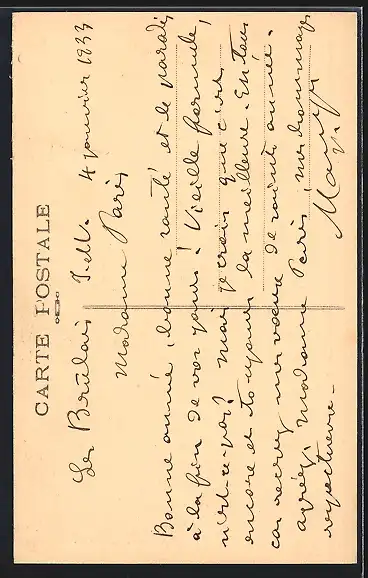 CARTE POSTALE
Les Brûlais I.&V. 4 janvier 1933
Madame Paris
Bonne année, bonne santé et le paradis
à la fin de vos jours ! Vieille formule,
n'est-ce-pas ? mais je crois que c'est
encore et toujours la meilleure. En tous
cas recevez nos vœux de sainte année.
agréez, Madame Paris, nos hommages
respectueux.